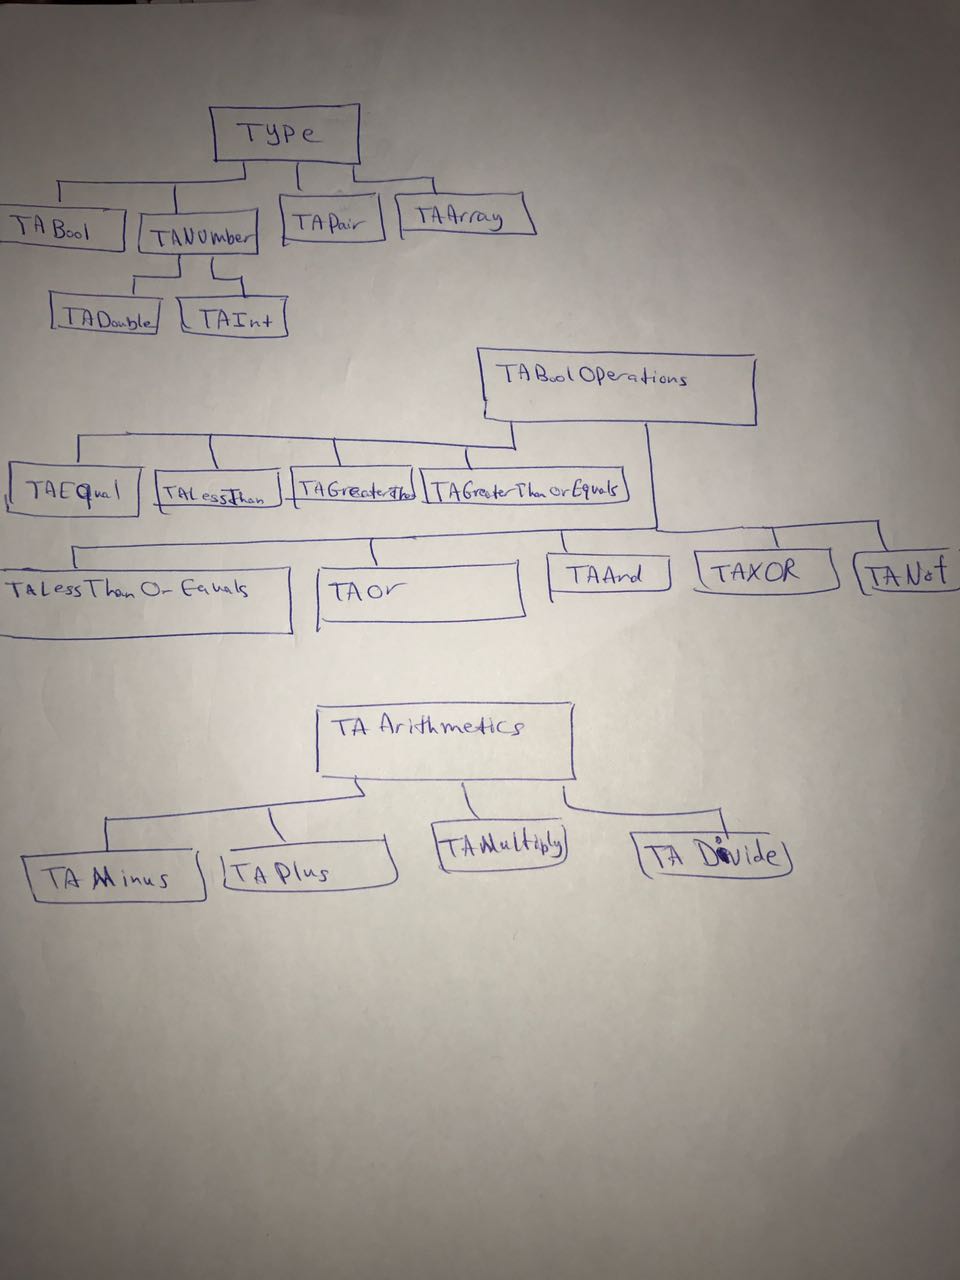 TYPe
TABool
TANUmber
TAPair
TAArray
TADouble
TAInt
TABoolOperations
TAEqual
TALessThan
TAGreaterThan
TAGreaterThanOrEquals
TALessThanOrEquals
TAOr
TAAnd
TAXOR
TANot
TA Arithmetics
TA Minus
TA Plus
TAMultiply
TA Divide